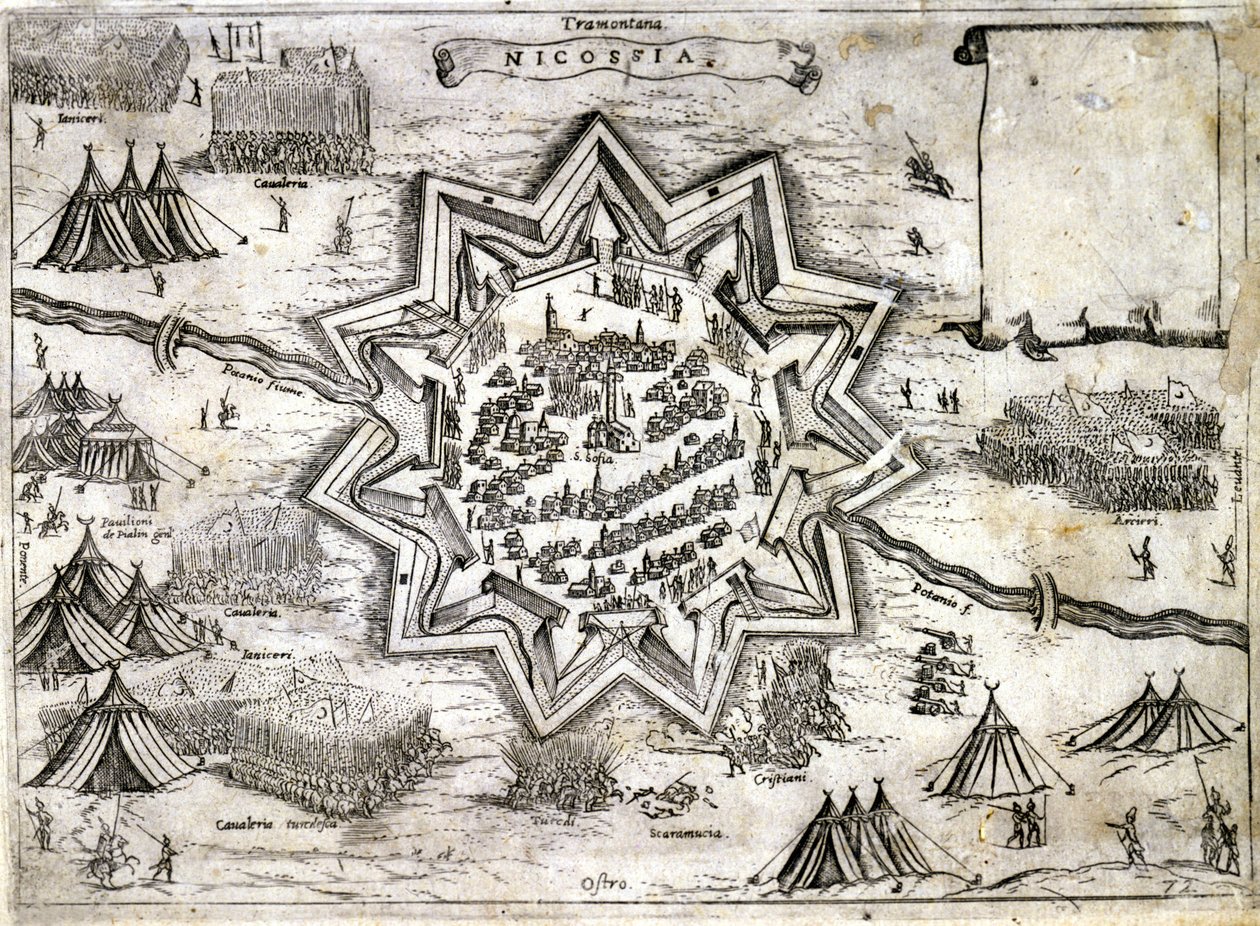 Tramontana.
NICOSSIA.
Ianiceri.
Caualeria.
Potanio fiume.
S. Sofia.
Leuante.
Arcieri.
Pauilioni
de Pialin genl
Ponente
Caualeria.
Potanio f.
Ianiceri.
Cristiani.
Caualeria turchesca.
Turchi.
Scaramucia.
Ostro.
72